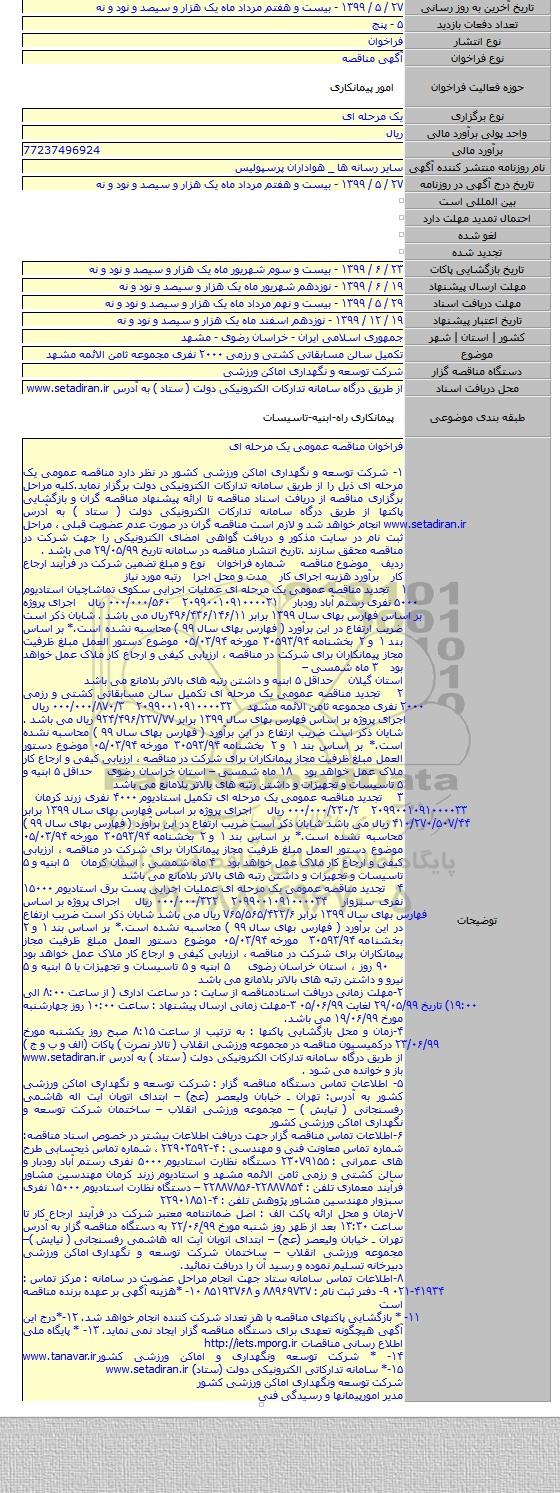 تاریخ آخرین به روز رسانی ۲۷ / ۵ / ۱۳۹۹ - بیست و هفتم مرداد ماه یک هزار و سیصد و نود و نه
تعداد دفعات بازدید ۵ - پنج
نوع انتشار فراخوان
نوع فراخوان آگهی مناقصه
حوزه فعالیت فراخوان امور پیمانکاری
نوع برگزاری یک مرحله ای
واحد پولی برآورد مالی ریال
برآورد مالی 77237496924
نام روزنامه منتشر کننده آگهی سایر رسانه ها _ هواداران پرسپولیس
تاریخ درج آگهی در روزنامه ۲۷ / ۵ / ۱۳۹۹ - بیست و هفتم مرداد ماه یک هزار و سیصد و نود و نه
بین المللی است
احتمال تمدید مهلت دارد
لغو شده
تجدید شده
تاریخ بازگشایی پاکات ۲۳ / ۶ / ۱۳۹۹ - بیست و سوم شهریور ماه یک هزار و سیصد و نود و نه
مهلت ارسال پیشنهاد ۱۹ / ۶ / ۱۳۹۹ - نوزدهم شهریور ماه یک هزار و سیصد و نود و نه
مهلت دریافت اسناد ۲۹ / ۵ / ۱۳۹۹ - بیست و نهم مرداد ماه یک هزار و سیصد و نود و نه
تاریخ اعتبار پیشنهاد ۱۹ / ۱۲ / ۱۳۹۹ - نوزدهم اسفند ماه یک هزار و سیصد و نود و نه
کشور | استان | شهر جمهوری اسلامی ایران - خراسان رضوی - مشهد
موضوع تکمیل سالن مسابقاتی کشتی و رزمی ۲۰۰۰ نفری مجموعه ثامن الائمه مشهد
دستگاه مناقصه گزار شرکت توسعه و نگهداری اماکن ورزشی
محل دریافت اسناد از طریق درگاه سامانه تدارکات الکترونیکی دولت ( ستاد ) به آدرس www.setadiran.ir
طبقه بندی موضوعی پیمانکاری راه-ابنیه-تاسیسات
توضیحات
فراخوان مناقصه عمومی یک مرحله ای
۱- شرکت توسعه و نگهداری اماکن ورزشی کشور در نظر دارد مناقصه عمومی یک
مرحله ای ذیل را از طریق سامانه تدارکات الکترونیکی دولت برگزار نماید.کلیه مراحل
برگزاری مناقصه از دریافت اسناد مناقصه تا ارائه پیشنهاد مناقصه گران و بازگشایی
پاکتها از طریق درگاه سامانه تدارکات الکترونیکی دولت ( ستاد ) به آدرس
www.setadiran.ir انجام خواهد شد و لازم است مناقصه گران در صورت عدم عضویت قبلی ، مراحل
ثبت نام در سایت مذکور و دریافت گواهی امضای الکترونیکی را جهت شرکت در
مناقصه محقق سازند .تاریخ انتشار مناقصه در سامانه تاریخ ۲۹/۰۵/۹۹ می باشد .
ردیف موضوع مناقصه شماره فراخوان نوع و مبلغ تضمین شرکت در فرآیند ارجاع
کار برآورد هزینه اجرای کار مدت و محل اجرا رتبه مورد نیاز
۱ تجدید مناقصه عمومی یک مرحله ای عملیات اجرایی سکوی تماشاچیان استادیوم
۵۰۰۰ نفری رستم آباد رودبار ۲۰۹۹۰۰۱۰۹۱۰۰۰۰۳۱ ۰۰۰/۰۰۰/۵۶۰ ریال اجرای پروژه
بر اساس فهارس بهای سال ۱۳۹۹ برابر ۴۹۶/۴۳۶/۱۴۶/۱۱ریال می باشد . شایان ذکر است
ضریب ارتفاع در این برآورد ( فهارس بهای سال ۹۹ ) محاسبه نشده است.* بر اساس
بند ۱ و ۲ بخشنامه ۳۰۵۹۳/۹۴ مورخه ۰۵/۰۳/۹۴ موضوع دستور العمل مبلغ ظرفیت
مجاز پیمانکاران برای شرکت در مناقصه ، ارزیابی کیفی و ارجاع کار ملاک عمل خواهد
بود ۳ ماه شمسی –
استان گیلان حداقل ۵ ابنیه و داشتن رتبه های بالاتر بلامانع می باشد
۲ تجدید مناقصه عمومی یک مرحله ای تکمیل سالن مسابقاتی کشتی و رزمی
۲۰۰۰ نفری مجموعه ثامن الائمه مشهد ۲۰۹۹۰۰۱۰۹۱۰۰۰۰۳۲ ۰۰۰/۰۰۰/۸۷۰/۳ ریال
اجرای پروژه بر اساس فهارس بهای سال ۱۳۹۹ برابر ۹۲۴/۴۹۶/۲۳۷/۷۷ ریال می باشد .
شایان ذکر است ضریب ارتفاع در این برآورد ( فهارس بهای سال ۹۹ ) محاسبه نشده
است.* بر اساس بند ۱ و ۲ بخشنامه ۳۰۵۹۳/۹۴ مورخه ۰۵/۰۳/۹۴ موضوع دستور
العمل مبلغ ظرفیت مجاز پیمانکاران برای شرکت در مناقصه ، ارزیابی کیفی و ارجاع کار
ملاک عمل خواهد بود ۱۸ ماه شمسی – استان خراسان رضوی حداقل ۵ ابنیه و
۵ تاسیسات و تجهیزات و داشتن رتبه های بالاتر بلامانع می باشد
۳ تجدید مناقصه عمومی یک مرحله ای تکمیل استادیوم ۴۰۰۰ نفری زرند کرمان
۲۰۹۹۰۰۱۰۹۱۰۰۰۰۳۳ ۰۰۰/۰۰۰/۲۳۰/۲ ریال اجرای پروژه بر اساس فهارس بهای سال ۱۳۹۹ برابر
۴۱۰/۲۷۰/۵۰۷/۴۴ ریال می باشد شایان ذکر است ضریب ارتفاع در این برآورد( فهارس بهای سال ۹۹ )
محاسبه نشده است.* بر اساس بند ۱ و ۲ بخشنامه ۳۰۵۹۳/۹۴ مورخه ۰۵/۰۳/۹۴
موضوع دستور العمل مبلغ ظرفیت مجاز پیمانکاران برای شرکت در مناقصه ، ارزیابی
کیفی و ارجاع کار ملاک عمل خواهد بود ۴ ماه شمسی ، استان کرمان ۵ ابنیه و ۵
تاسیسات و تجهیزات و داشتن رتبه های بالاتر بلامانع می باشد
۴ تجدید مناقصه عمومی یک مرحله ای عملیات اجرایی پست برق استادیوم ۱۵۰۰۰
نفری سبزوار ۲۰۹۹۰۰۱۰۹۱۰۰۰۰۳۴ ۰۰۰/۰۰۰/۳۲۲ ریال اجرای پروژه بر اساس
فهارس بهای سال ۱۳۹۹ برابر ۷۶۵/۵۶۵/۴۲۲/۶ ریال می باشد شایان ذکر است ضریب ارتفاع
در این برآورد ( فهارس بهای سال ۹۹ ) محاسبه نشده است.* بر اساس بند ۱ و ۲
بخشنامه ۳۰۵۹۳/۹۴ مورخه ۰۵/۰۳/۹۴ موضوع دستور العمل مبلغ ظرفیت مجاز
پیمانکاران برای شرکت در مناقصه ، ارزیابی کیفی و ارجاع کار ملاک عمل خواهد بود
۹۰ روز ، استان خراسان رضوی ۵ ابنیه و ۵ تاسیسات و تجهیزات یا ۵ ابنیه و ۵
نیرو و داشتن رتبه های بالاتر بلامانع می باشد
۲-مهلت زمانی دریافت اسنادمناقصه از سایت : در ساعت اداری ( از ساعت ۸:۰۰ الی
۱۹:۰۰) تاریخ ۲۹/۰۵/۹۹ لغایت ۰۵/۰۶/۹۹ ۳-مهلت زمانی ارسال پیشنهاد : ساعت ۱۰:۰۰ روز چهارشنبه
مورخ ۱۹/۰۶/۹۹ می باشد.
۴-زمان و محل بازگشایی پاکتها : به ترتیب از ساعت ۸:۱۵ صبح روز یکشنبه مورخ
۲۳/۰۶/۹۹ درکمیسیون مناقصه در مجموعه ورزشی انقلاب ( تالار نصرت ) پاکات (الف و ب و ج )
از طریق درگاه سامانه تدارکات الکترونیکی دولت ( ستاد ) به آدرس www.setadiran.ir
باز و خوانده می شود .
۵- اطلاعات تماس دستگاه مناقصه گزار : شرکت توسعه و نگهداری اماکن ورزشی
کشور به آدرس: تهران ـ خیابان ولیعصر (عج) – ابتدای اتوبان آیت اله هاشمی
رفسنجانی ( نیایش ) – مجموعه ورزشی انقلاب – ساختمان شرکت توسعه و
نگهداری اماکن ورزشی کشور
۶-اطلاعات تماس مناقصه گزار جهت دریافت اطلاعات بیشتر در خصوص اسناد مناقصه:
شماره تماس معاونت فنی و مهندسی : ۴-۲۲۹۰۳۵۹۲ ، شماره تماس ذیحسابی طرح
های عمرانی : ۲۳۰۷۹۱۵۵ دستگاه نظارت استادیوم ۵۰۰۰ نفری رستم آباد رودبار و
سالن کشتی و رزمی ثامن الائمه مشهد و استادیوم زرند کرمان مهندسین مشاور
فرآیند معماری تلفن : ۲۲۸۸۷۸۵۴-۲۲۸۸۷۸۵۶ – دستگاه نظارت استادیوم ۱۵۰۰۰ نفری
سبزوار مهندسین مشاور پژوهش تلفن : ۴-۲۲۹۰۱۸۵۱
۷-زمان و محل ارائه پاکت الف : اصل ضمانتنامه معتبر شرکت در فرآیند ارجاع کار تا
ساعت ۱۳:۳۰ بعد از ظهر روز شنبه مورخ ۲۲/۰۶/۹۹ به دستگاه مناقصه گزار به آدرس
تهران ـ خیابان ولیعصر (عج) – ابتدای اتوبان آیت اله هاشمی رفسنجانی ( نیایش )–
مجموعه ورزشی انقلاب – ساختمان شرکت توسعه و نگهداری اماکن ورزشی
دبیرخانه تسلیم نموده و رسید آن را دریافت نمائید.
۸-اطلاعات تماس سامانه ستاد جهت انجام مراحل عضویت در سامانه : مرکز تماس :
۰۲۱-۴۱۹۳۴ ۹- دفتر ثبت نام : ۸۸۹۶۹۷۳۷ و ۸۵۱۹۳۷۶۸ ۱۰- *هزینه آگهی بر عهده برنده مناقصه
است
۱۱- * بازگشایی پاکتهای مناقصه با هر تعداد شرکت کننده انجام خواهد شد. ۱۲-*درج این
آگهی هیچگونه تعهدی برای دستگاه مناقصه گزار ایجاد نمی نماید. ۱۳- * پایگاه ملی
اطلاع رسانی مناقصات http://iets.mporg.ir
۱۴- * شرکت توسعه ونگهداری و اماکن ورزشی کشورwww.tanavar.ir
۱۵-* سامانه تدارکاتی الکترونیکی دولت (ستاد) www.setadiran.ir
شرکت توسعه ونگهداری اماکن ورزشی کشور
مدیر امورپیمانها و رسیدگی فنی